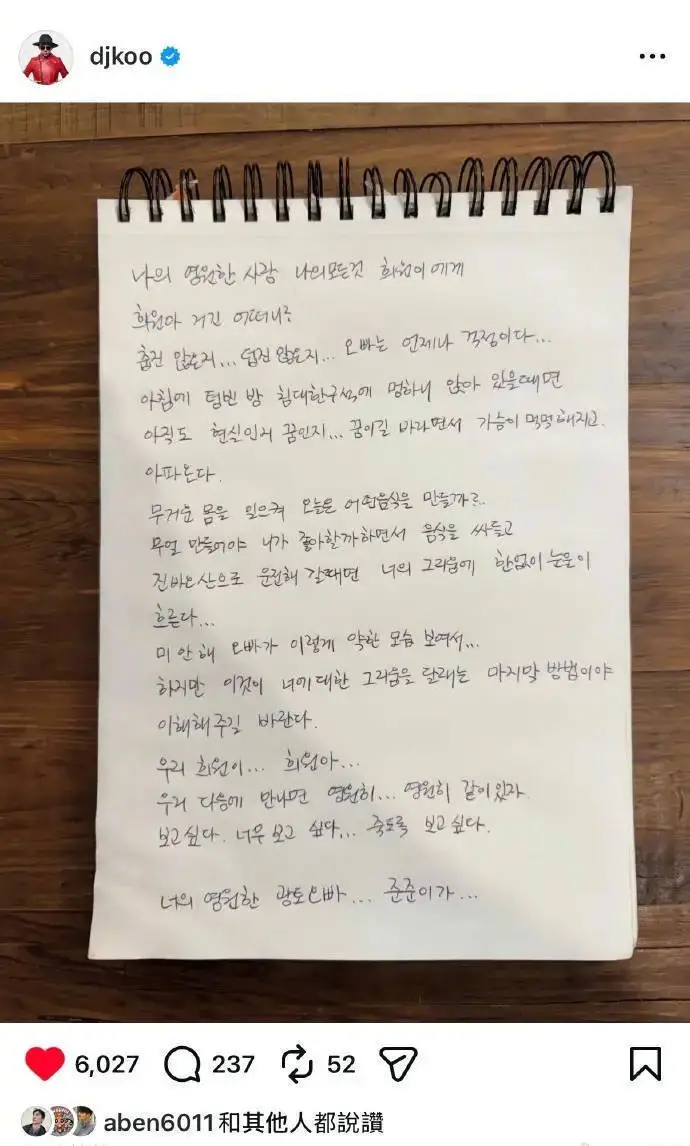 djkoo
나의 영원한 사랑 나의모든것 희원이에게
희원아 거긴 어떠니?
춥진 않은지... 덥진 않은지... 오빠는 언제나 걱정이다...
아침에 텅빈 방 침대한구석에 멍하니 앉아 있을때면
아직도 현실인지 꿈인지... 꿈이길 바라면서 가슴이 먹먹해지고.
아파온다.
무거운 몸을 일으켜 오늘은 어떤음식을 만들까?..
무얼 만들어야 니가 좋아할까하면서 음식을 싸들고
진바오산으로 운전해 갈때면 너의 그리움에 한없이 눈물이
흐른다...
미안해 오빠가 이렇게 약한 모습 보여서...
하지만 이것이 너에대한 그리움을 달래는 마지막 방법이야
이해해주길 바란다.
우리 희원이... 희원아...
우리 다음에 만나면 영원히... 영원히 같이있자.
보고싶다. 너무 보고 싶다... 죽도록 보고싶다.
너의 영원한 광토오빠... 준준이가...
6,027 237 52
aben6011和其他人都說讚